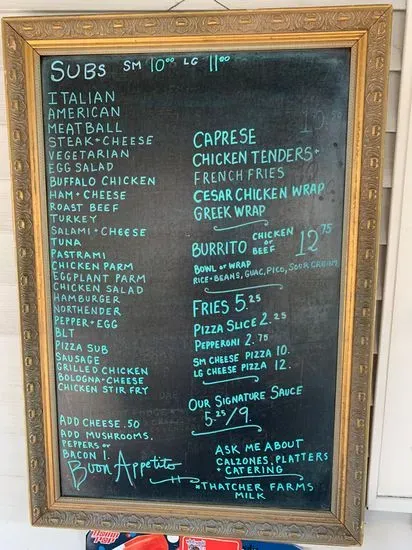 SUBS SM 10⁰⁰ LG 11⁰⁰
ITALIAN
AMERICAN
MEATBALL
STEAK + CHEESE
VEGETARIAN
EGG SALAD
BUFFALO CHICKEN
HAM + CHEESE
ROAST BEEF
TURKEY
SALAMI + CHEESE
TUNA
PASTRAMI
CHICKEN PARM
EGGPLANT PARM
CHICKEN SALAD
HAMBURGER
NORTHENDER
PEPPER + EGG
BLT
PIZZA SUB
SAUSAGE
GRILLED CHICKEN
BOLOGNA + CHEESE
CHICKEN STIR FRY
ADD CHEESE .50
ADD MUSHROOMS,
PEPPERS or
BACON 1.
Buon Appetito
CAPRESE
CHICKEN TENDERS +
FRENCH FRIES
CESAR CHICKEN WRAP
GREEK WRAP
BURRITO CHICKEN or BEEF 12.⁷⁵
BOWL or WRAP
RICE + BEANS, GUAC, PICO, SOUR CREAM
FRIES 5.²⁵
PIZZA SLICE 2.²⁵
PEPPERONI 2.⁷⁵
SM CHEESE PIZZA 10.
LG CHEESE PIZZA 12.
OUR SIGNATURE SAUCE
5.²⁵/9.
ASK ME ABOUT
CALZONES, PLATTERS
+ CATERING
*THATCHER FARMS
MILK